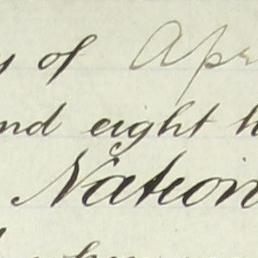 y of Apr
nd eight h
Nation